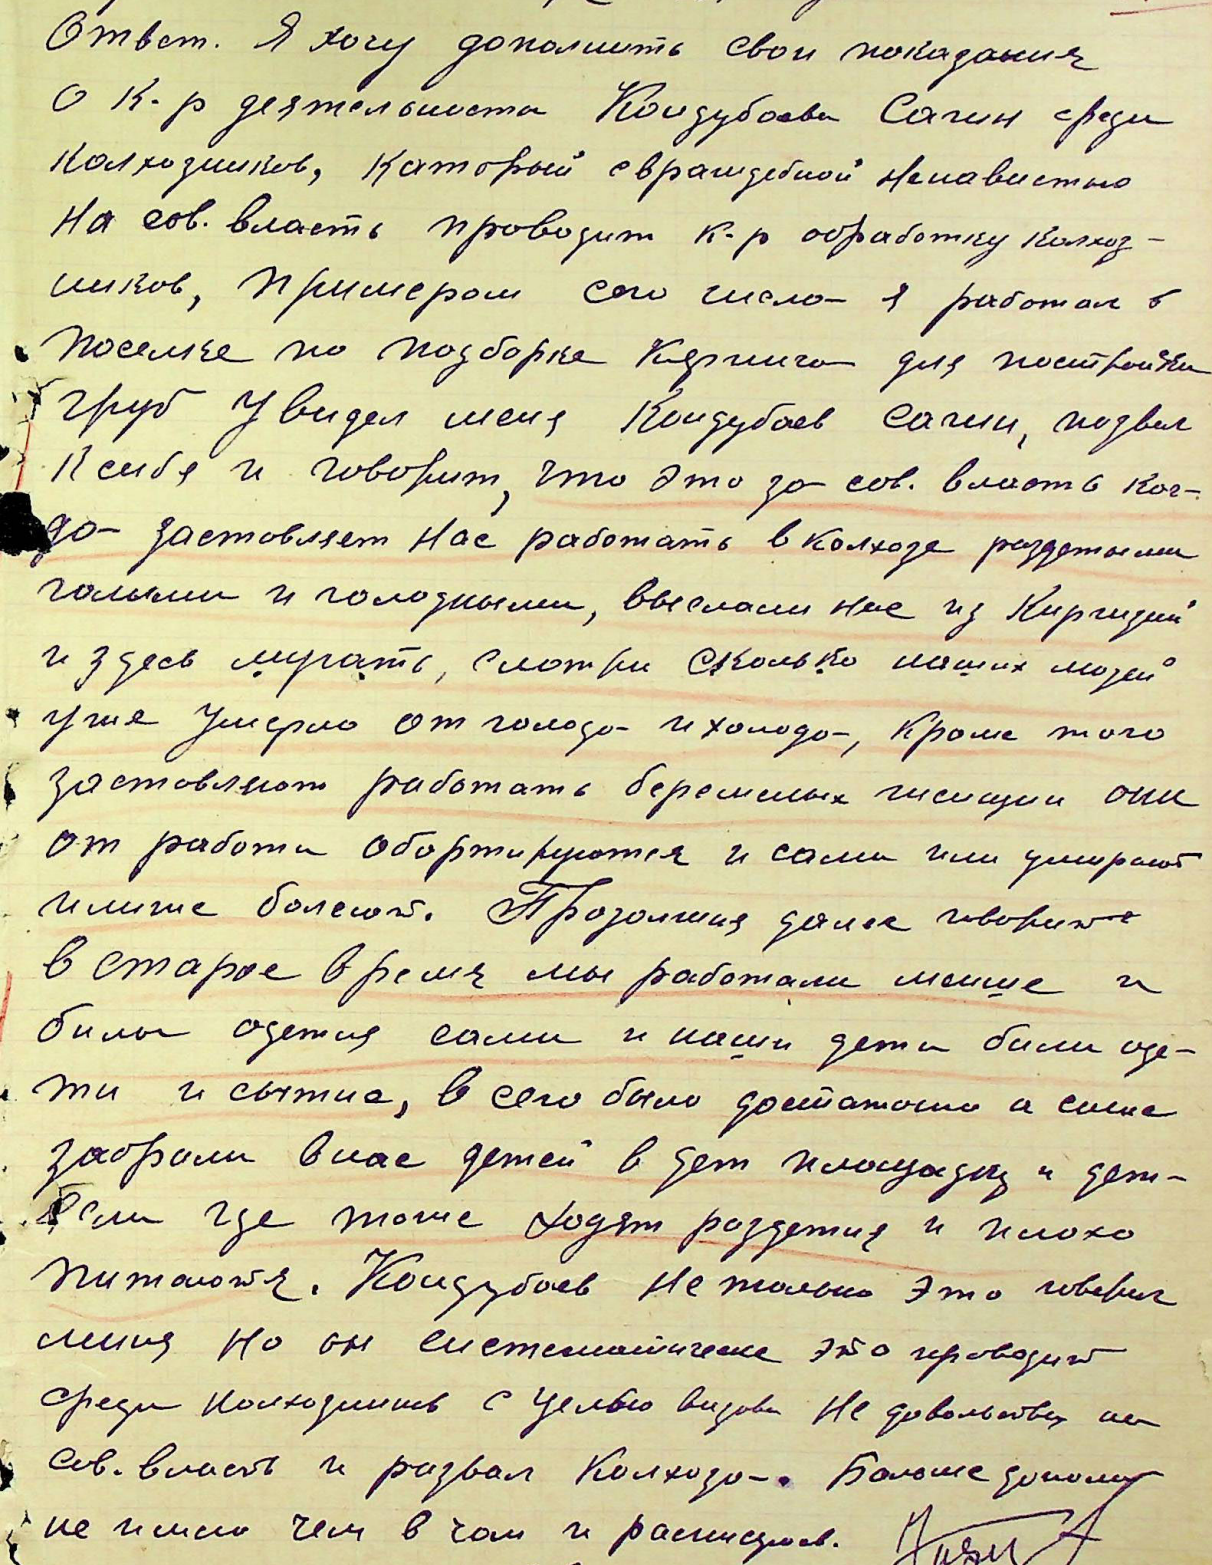 Ответ. Я хочу дополнить свои показания
о к-р деятельности Кондубаева Сагин среди
колхозников, каторый с враждебной ненавистью
на сов. власть проводит к-р обработку колхоз-
ников, примером сего числа я работал в
поселке по подборке кярпича для пострайки
труб увидел меня Кондубаев Сагин, позвал
к себя и говорит, что это за сов. власть ког-
да заставляет нас работать в колхозе раздетыми
голыми и голодными, выслали нас из Киргизий
и здесь мурать, смотри сколько наших людей
уже умерло от голода и холода, кроме того
заставляют работать беременых женщин они
от работи обортируются и сами или умирают
илиже болеют. Продолжия далее говорит
в старое время мы работали менше и
били одетия сами и наши дети били оде-
ти и сытие, всего было достаточно а сичас
забрали внас детей в дет площадку и дет-
ясли где тоже ходят раздетия и плохо
питаются. Кондубаев не только это говорил
миня но он систематически это проводит
среди колхозников с целью визова не довольствия на
сов. власть и развал колхоза. Больше дополнит
не имею чем в чом и расписуюсь.